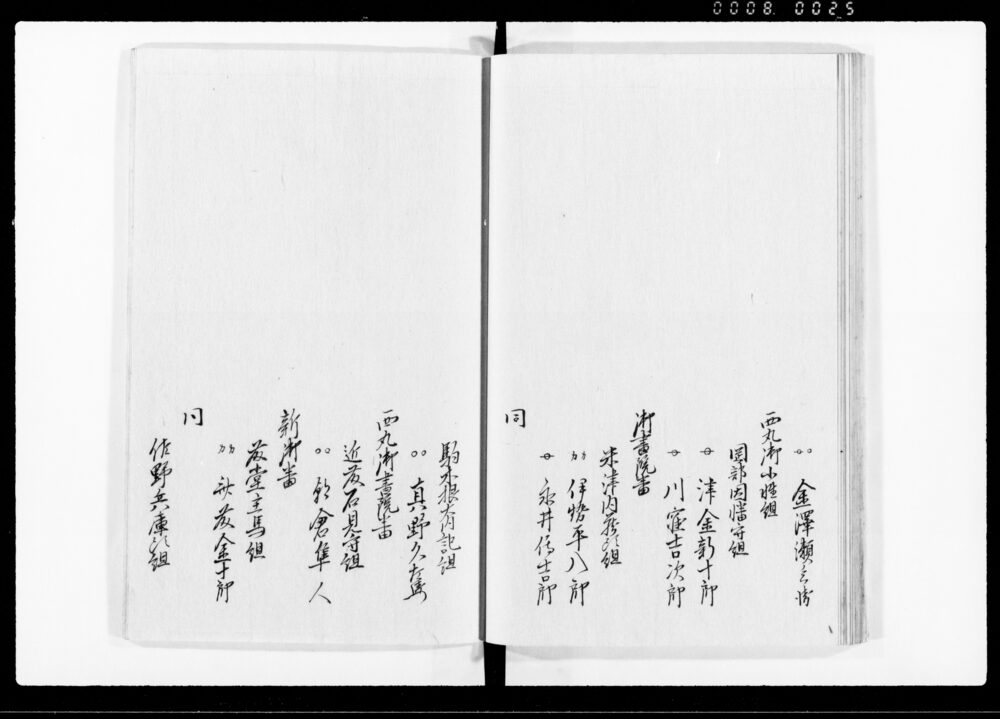 0008 0025
〃 金澤瀬兵衛
西丸御小姓組
岡部因幡守組
〃 津金新十郎
〃 川窪吉次郎
御書院番
米津内蔵頭組
〃 伊勢平八郎
〃 永井傳吉郎
同
駒木根大内記組
〃 真野久左衛
西丸御書院番
近藤石見守組
〃 朝倉隼人
新御番
藤堂主馬組
〃 
金十郎
同
佐野兵庫頭組